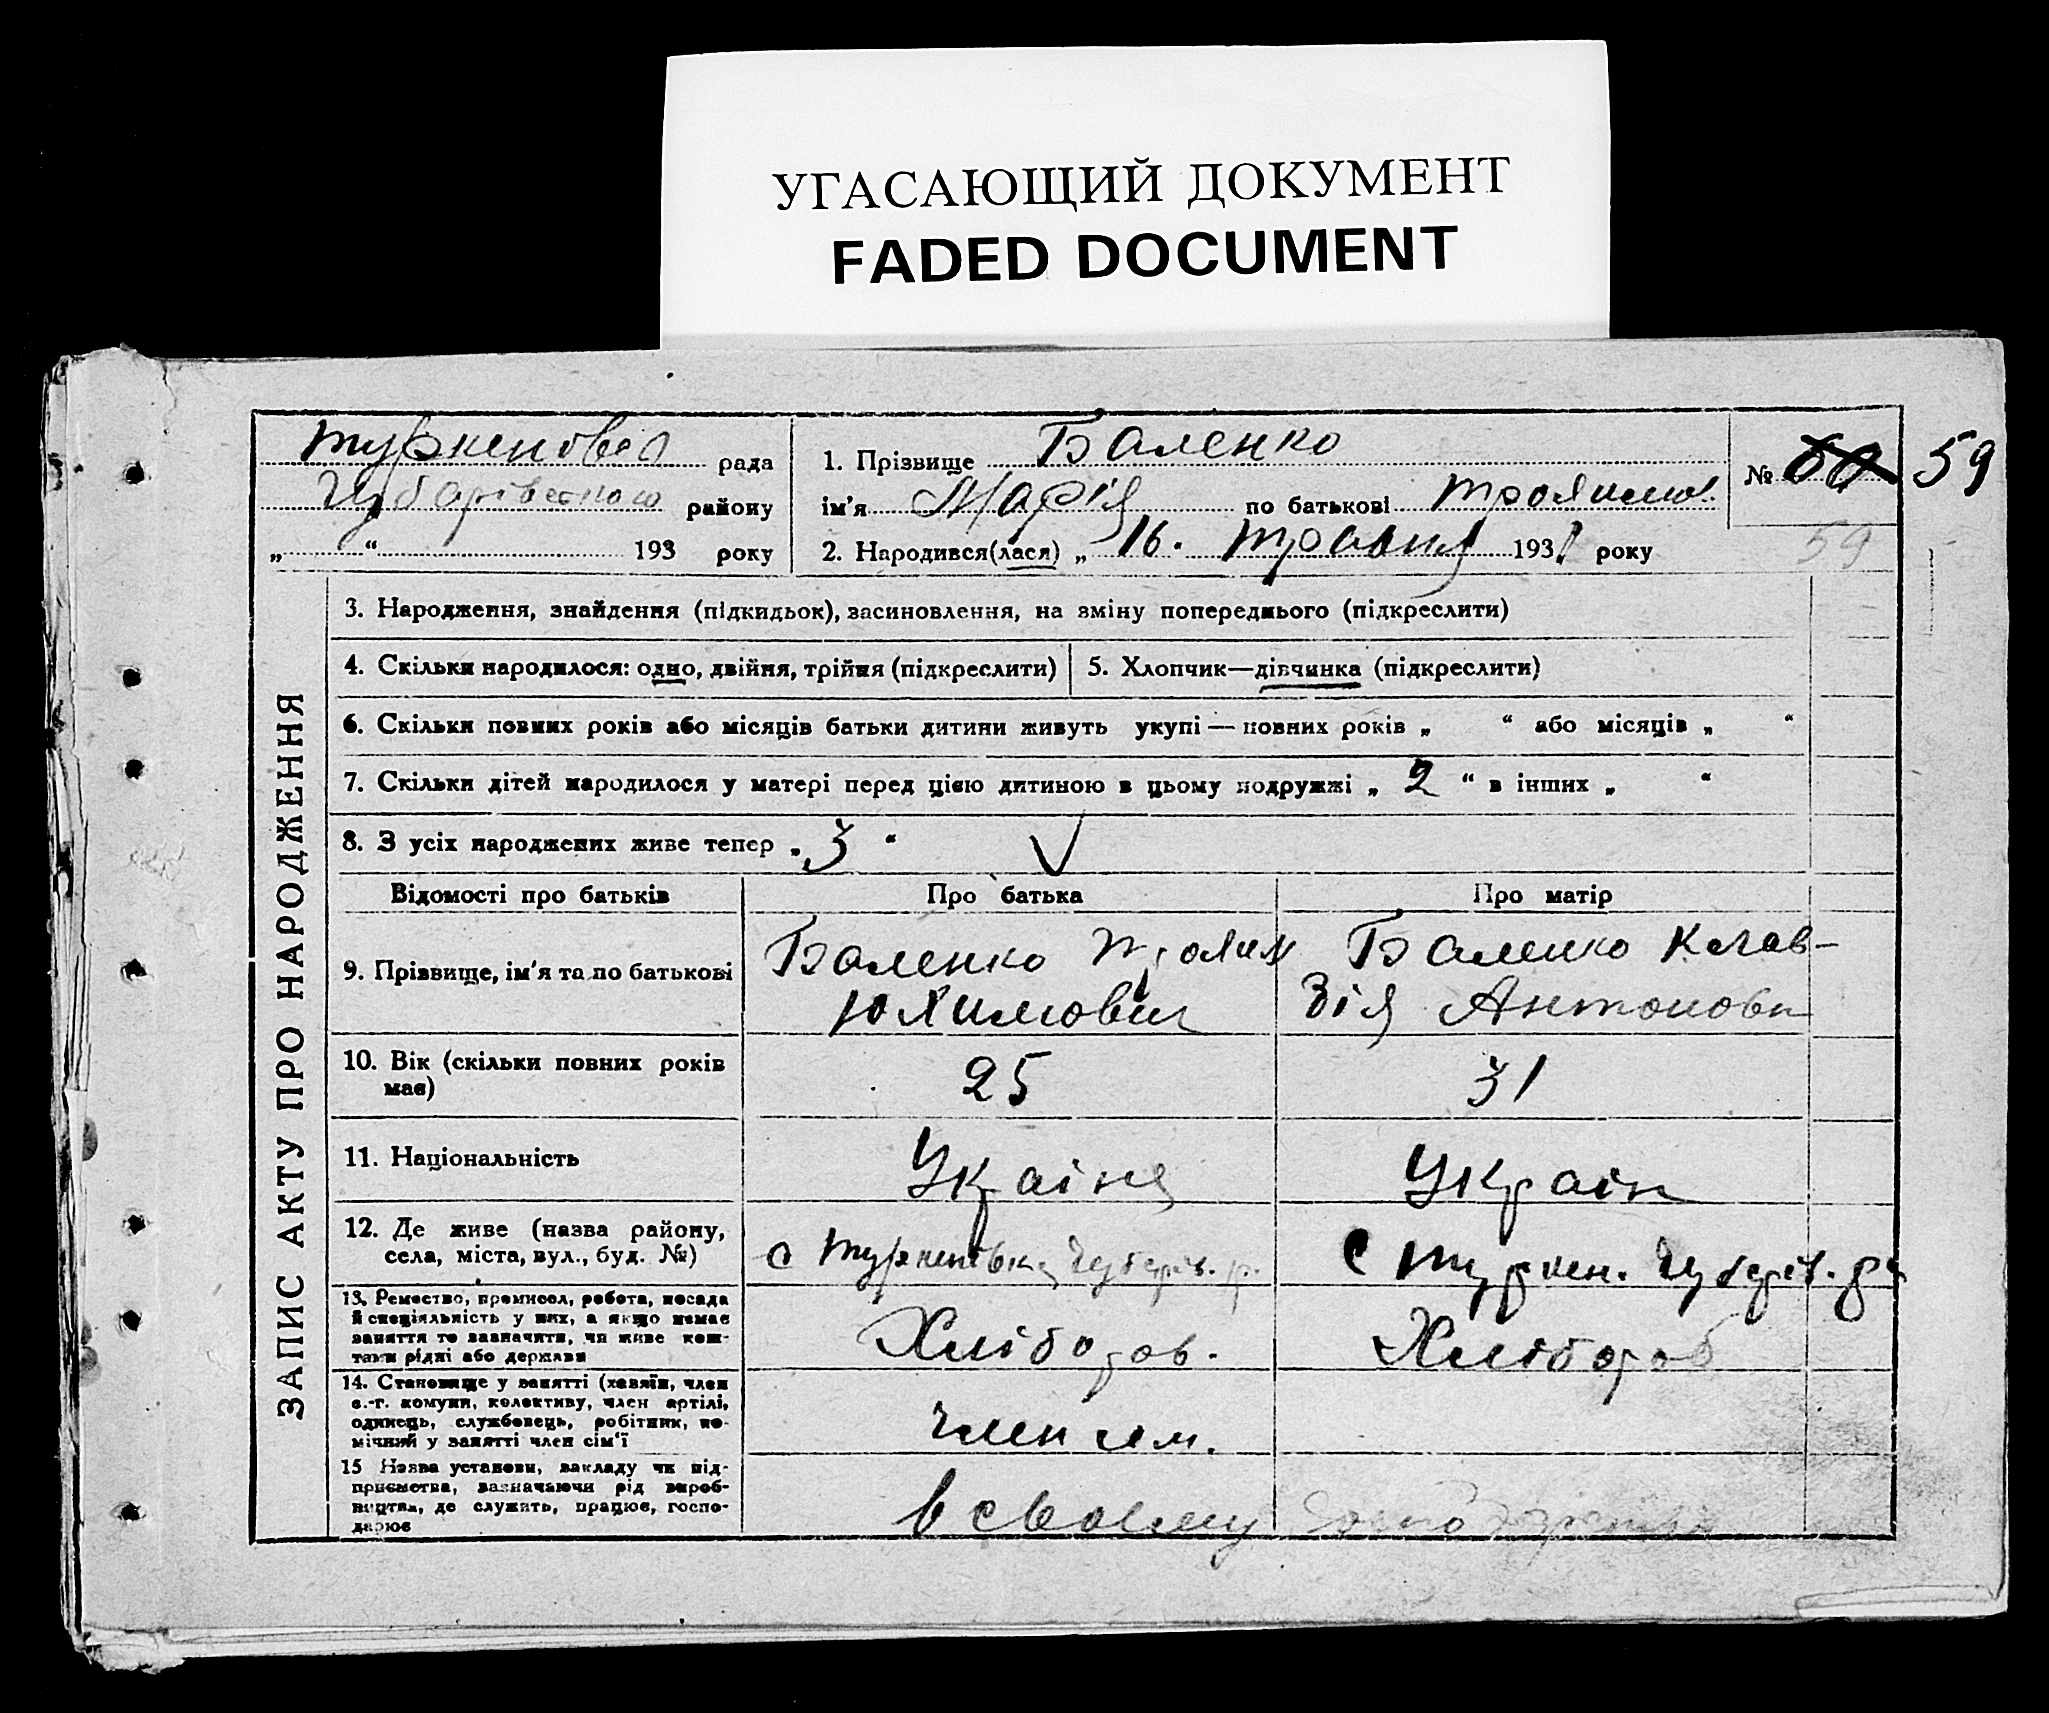 УГАСАЮЩИЙ ДОКУМЕНТ
FADED DOCUMENT
Туркеновка рада
Чубарівського району
„ “ 193 року
1. Прізвище Баленко
ім'я Марія по батькові Троякимов.
2. Народився(лася) „ 16. травня 1931 року
№ 60 59
59
ЗАПИС АКТУ ПРО НАРОДЖЕННЯ
3. Народження, знайдення (підкидьок), засиновлення, на зміну попереднього (підкреслити)
4. Скільки народилося: одно, двійня, трійня (підкреслити)
5. Хлопчик—дівчинка (підкреслити)
6. Скільки повних років або місяців батьки дитини живуть укупі — повних років „ “ або місяців „ “
7. Скільки дітей народилося у матері перед цією дитиною в цьому подружжі „ 2 “ в інших „ “
8. З усіх народжених живе тепер „ 3 “
Відомості про батьків
Про батька
Про матір
9. Прізвище, ім'я та по батькові
Баленко
Юхимович
Баленко Клав-
дія Антоновн
10. Вік (скільки повних років
має)
25
31
11. Національність
Україне
Україн
12. Де живе (назва району,
села, міста, вул., буд. №)
с Туркенівка Чубарів. р.
с Туркен. Чубарів. р
13. Ремество, промисел, робота, посада
й спеціяльність у них, а якщо немає
заняття то зазначити, чи живе кош-
тами рідні або держави
Хлібороб.
Хлібороб
14. Становище у занятті (хазяїн, член
с.-г. комуни, колективу, член артілі,
одинець, службовець, робітник, по-
мічний у занятті член сім'ї
член
15 Назва установи, закладу чи під-
приємства, зазначаючи рід вироб-
ництва, де служить, працює, госпо-
дарює
в своєму